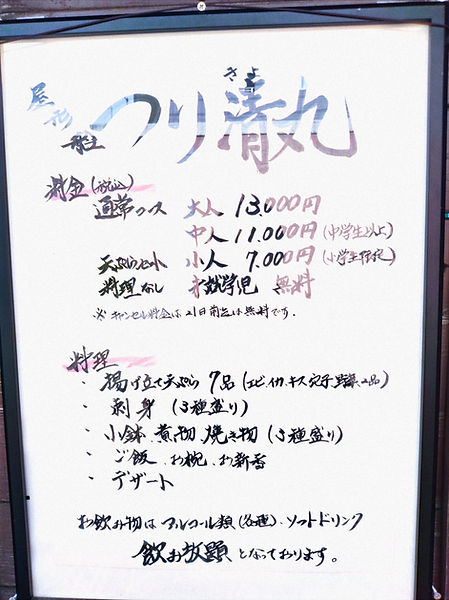 屋形船 つり清丸
きよ
料金(税込)
通常コース 大人 13.000円
中人 11.000円(中学生以上)
天ぷらセット 小人 7.000円(小学生限定)
料理なし 未就学児 無料
※キャンセル料金は21日前迄は無料です.
料理
・揚げ立て天ぷら 7品(エビ.イカ.キス.穴子.野菜2品)
・刺身(3種盛り)
・小鉢.煮物.焼き物(3種盛り)
・ご飯.お椀.お新香
・デザート
お飲み物はアルコール類(各種).ソフトドリンク
飲み放題となっております。